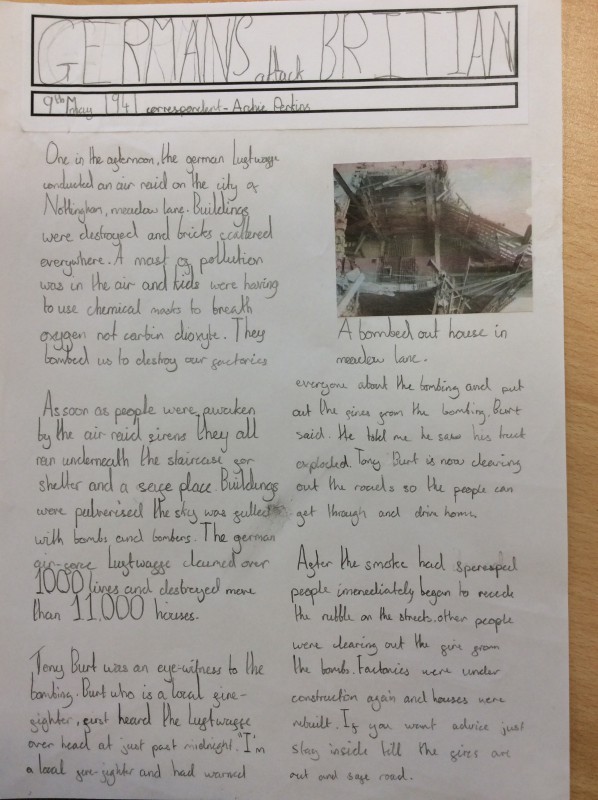 GERMANS attack BRITIAN
9th May 1941 correspondent - Archie Perkins
One in the afternoon, the german luftwaffe
conducted an air raid on the city of
Nottingham, meadow lane. Buildings
were destroyed and bricks scattered
everywhere. A mast of pollution
was in the air and kids were having
to use chemical masks to breath
oxygen not carbin dioxyte. They
bombed us to destroy our factories
As soon as people were awaken
by the air raid sirens they all
ran underneath the staircase for
shelter and a safe place. Buildings
were pulverised the sky was filled
with bombs and bombers. The german
air-force Luftwaffe claimed over
1000 lives and destroyed more
than 11,000 houses.
Tony Burt was an eye-witness to the
bombing. Burt who is a local fire-
fighter, first heard the luftwaffe
over head at just past midnight. "I'm
a local fire-fighter and had warned
A bombed out house in
meadow lane.
everyone about the bombing and put
out the fires from the bombing, Burt
said. He told me he saw his truck
exploded. Tony Burt is now clearing
out the roads so the people can
get through and drive home.
After the smoke had
people immediately began to
the rubble on the streets. other people
were clearing out the fire from
the bombs. Factories were under
construction again and houses were
rebuilt. If you want advice just
stay inside till the fires are
out and safe road.